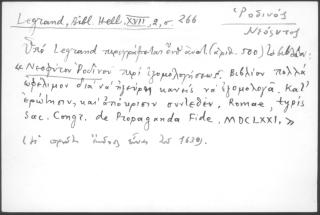 Legrand, Bibl. Hell. XVII, 2, σ 266
Ῥοδινός
Νεόφυτος
Ὑπὸ Legrand περιγράφεται ὑπ' ἀριθ. 500) τὸ βιβλίον:
« Νεοφύτου Ῥοδινοῦ περὶ ἐξομολογήσεως. Βιβλίον πολλὰ
ὠφέλιμον διὰ νὰ ἠξεύρῃ κανεὶς νὰ ἐξομολογᾶ. Κατ'
ἐρώτησιν καὶ ἀπόκρισιν συντεθέν. Romae, typis
Sac. Congr. de Propaganda Fide, MDCLXXI, »
(Ἡ πρώτη ἔκδοσις εἶναι τοῦ 1630).